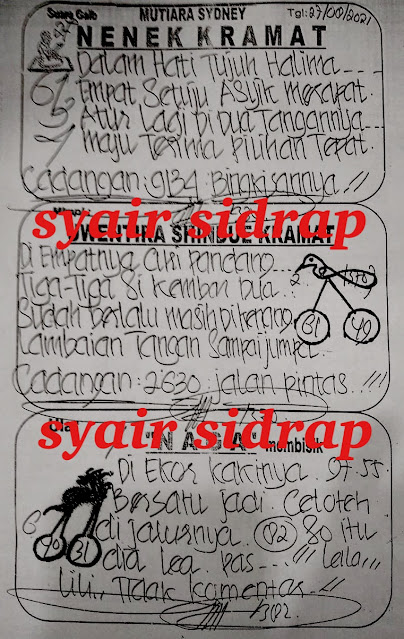 Suara Gaib MUTIARA SYDNEY Tgl: 27/09/2021
NENEK KRAMAT
Dalam Hati Tujuh Halima
Empat Setuju Asyik
Atur Lagi Di Dua Tangannya
Maju Terima Pilihan Tepat
Cadangan: 9134. Bingkisannya.!!
syair sidrap
WENTIRA SHINDUE KRAMAT
Di Empatnya Curi Pandang
Tiga-Tiga Si Kembar Dua
Sudah Berlalu masih Dikenang
31 40
Lambaian Tangan Sampai jumpa
Cadangan: 2630. jalan pintas.
syair sidrap
"N A G A" membisik
Di Ekor Kakinya. 97-55
Bersatu jadi Celoteh
di jalurnya. 92 80 itu
40 31
dia Lea. pas
Lili. Tidak